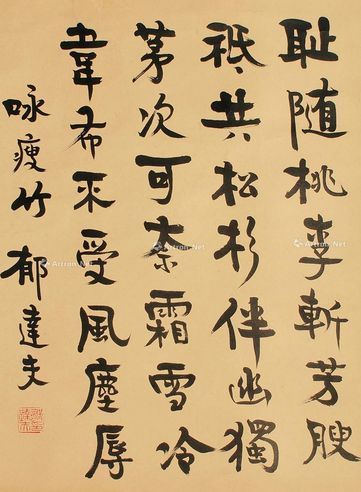 耻随桃李斩芳腴
祗共松杉伴幽獨
茅次可奈霜雪冷
韋布不受風塵辱
咏瘦竹 郁達夫